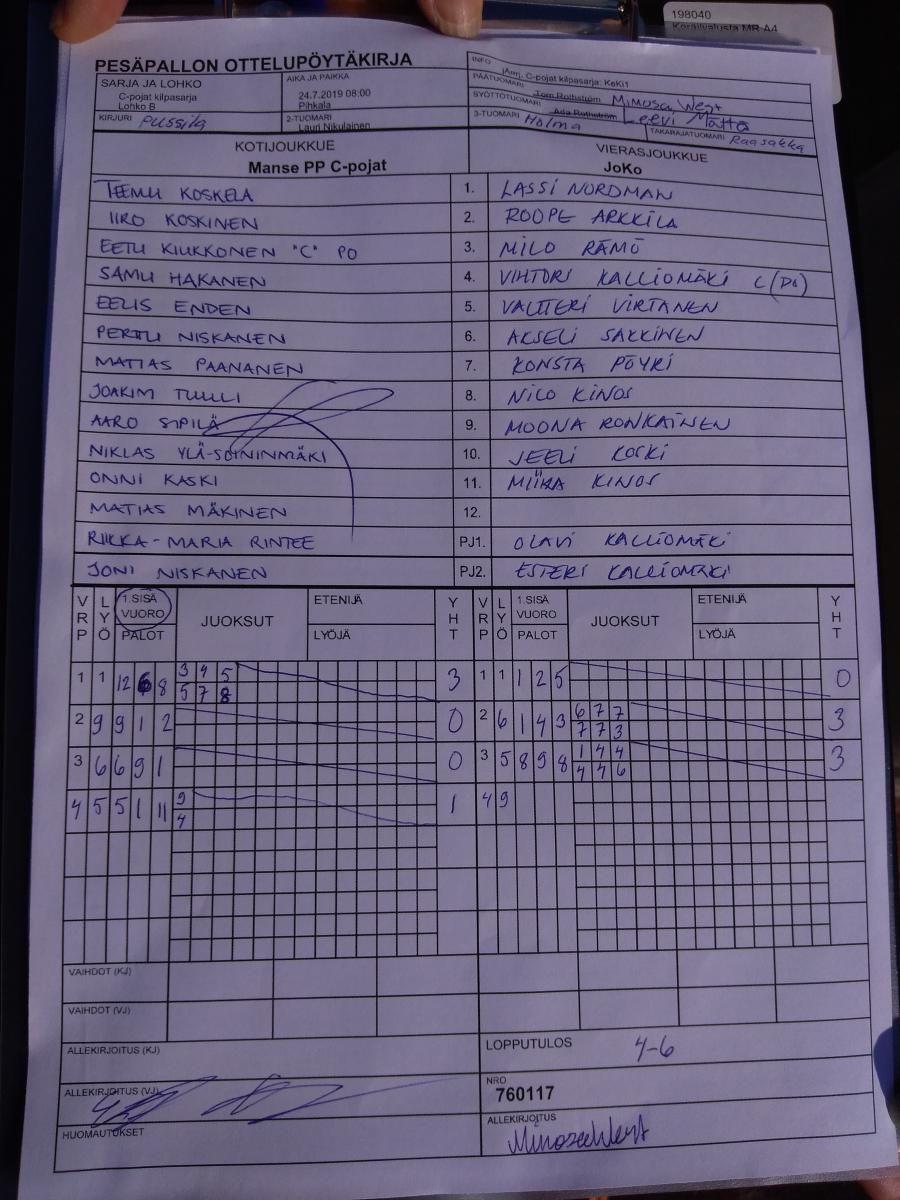 198040
Keräilyalusta MR A4
PESÄPALLON OTTELUPÖYTÄKIRJA
SARJA JA LOHKO
C-pojat kilpasarja
Lohko B
AIKA JA PAIKKA
24.7.2019 08:00
Pihkala
INFO
C-pojat kilpasarja: KeKi1
PÄÄTUOMARI Tom Rothström Mimosa West
SYÖTTÖTUOMARI Ada Rothström Leevi Matta
KIRJURI Pussila
2-TUOMARI
Lauri Nikulainen
3-TUOMARI Holma
TAKARAJATUOMARI Raasakka
KOTIJOUKKUE
Manse PP C-pojat
VIERASJOUKKUE
JoKo
TEEMU KOSKELA 1. LASSI NORDMAN
IIRO KOSKINEN 2. ROOPE ARKKILA
EETU KIUKKONEN "C" PO 3. MILO RÄMÖ
SAMU HAKANEN 4. VIHTORI KALLIOMÄKI C (PO)
EELIS ENDEN 5. VALTTERI VIRTANEN
PERTTU NISKANEN 6. AKSELI SAKKINEN
MATIAS PAANANEN 7. KONSTA PÖYRI
JOAKIM TUULI 8. NILO KINOS
AARO SIPILÄ 9. MOONA RONKAINEN
NIKLAS YLÄ-SOININMÄKI 10. JEELI KOSKI
ONNI KASKI 11. MIIKA KINOS
MATIAS MÄKINEN 12.
RIIKKA-MARIA RINTEE PJ1. OLAVI KALLIOMÄKI
JONI NISKANEN PJ2. ESTERI KALLIOMÄKI
VRP LYÖ 1.SISÄ VUORO PALOT JUOKSUT ETENIJÄ LYÖJÄ YHT VRP LYÖ 1.SISÄ VUORO PALOT JUOKSUT ETENIJÄ LYÖJÄ YHT
1 1 12 6 8 3 4 5 3 1 1 1 2 5 0
5 7 8
2 9 9 1 2 0 2 6 1 4 3 6 7 7 3
7 7 3
3 6 6 9 1 0 3 5 8 9 8 1 4 4 3
4 4 6
4 5 5 1 11 9 1 4 9
4
VAIHDOT (KJ)
VAIHDOT (VJ)
ALLEKIRJOITUS (KJ)
LOPPUTULOS 4-6
ALLEKIRJOITUS (VJ)
NRO
760117
HUOMAUTUKSET
ALLEKIRJOITUS